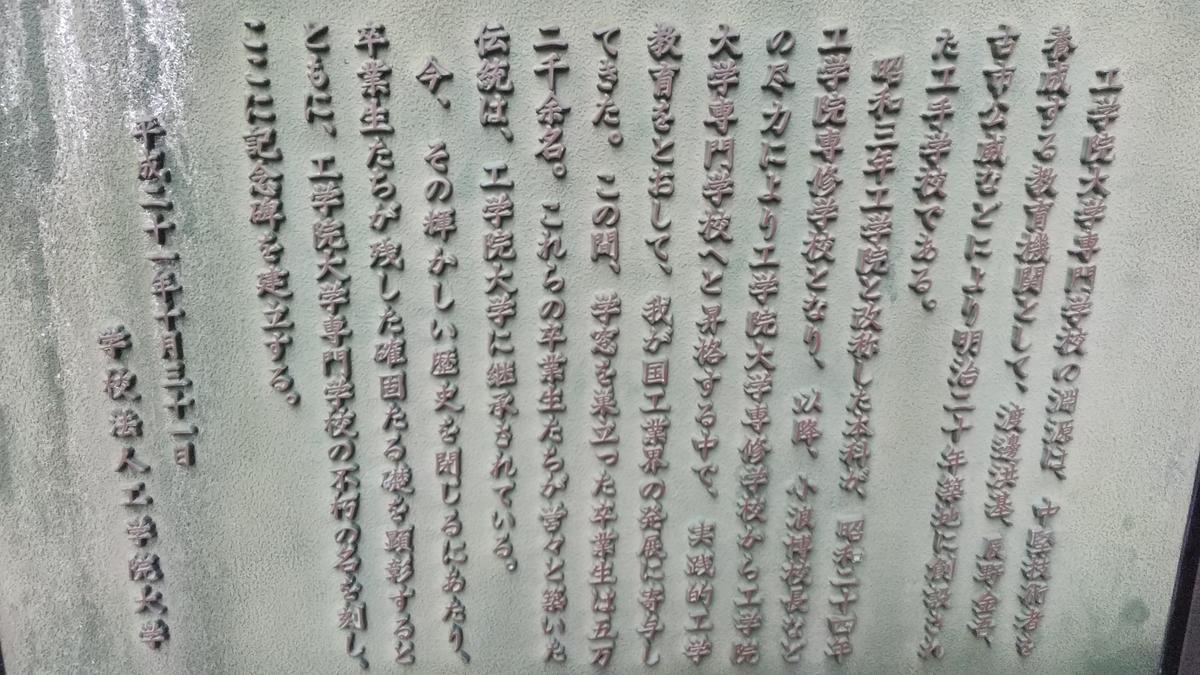 工学院大学専門学校の淵源は、中堅技術者を
養成する教育機関として、渡邊洪基、辰野金吾、
古市公威などにより明治二十年築地に創設され
た工手学校である。
昭和三年工学院と改称した本科が、昭和二十四年
工学院専修学校となり、以降、小浪博校長など
の尽力により工学院大学専修学校から工学院
大学専門学校へと昇格する中で、実践的工学
教育をとおして、我が国工業界の発展に寄与し
てきた。この間、学窓を巣立った卒業生は五万
二千余名。これらの卒業生たちが営々と築いた
伝統は、工学院大学に継承されている。
今、その輝かしい歴史を閉じるにあたり、
卒業生たちが残した確固たる礎を顕彰すると
ともに、工学院大学専門学校の不朽の名を刻し、
ここに記念碑を建立する。
平成二十一年十月三十一日
学校法人工学院大学